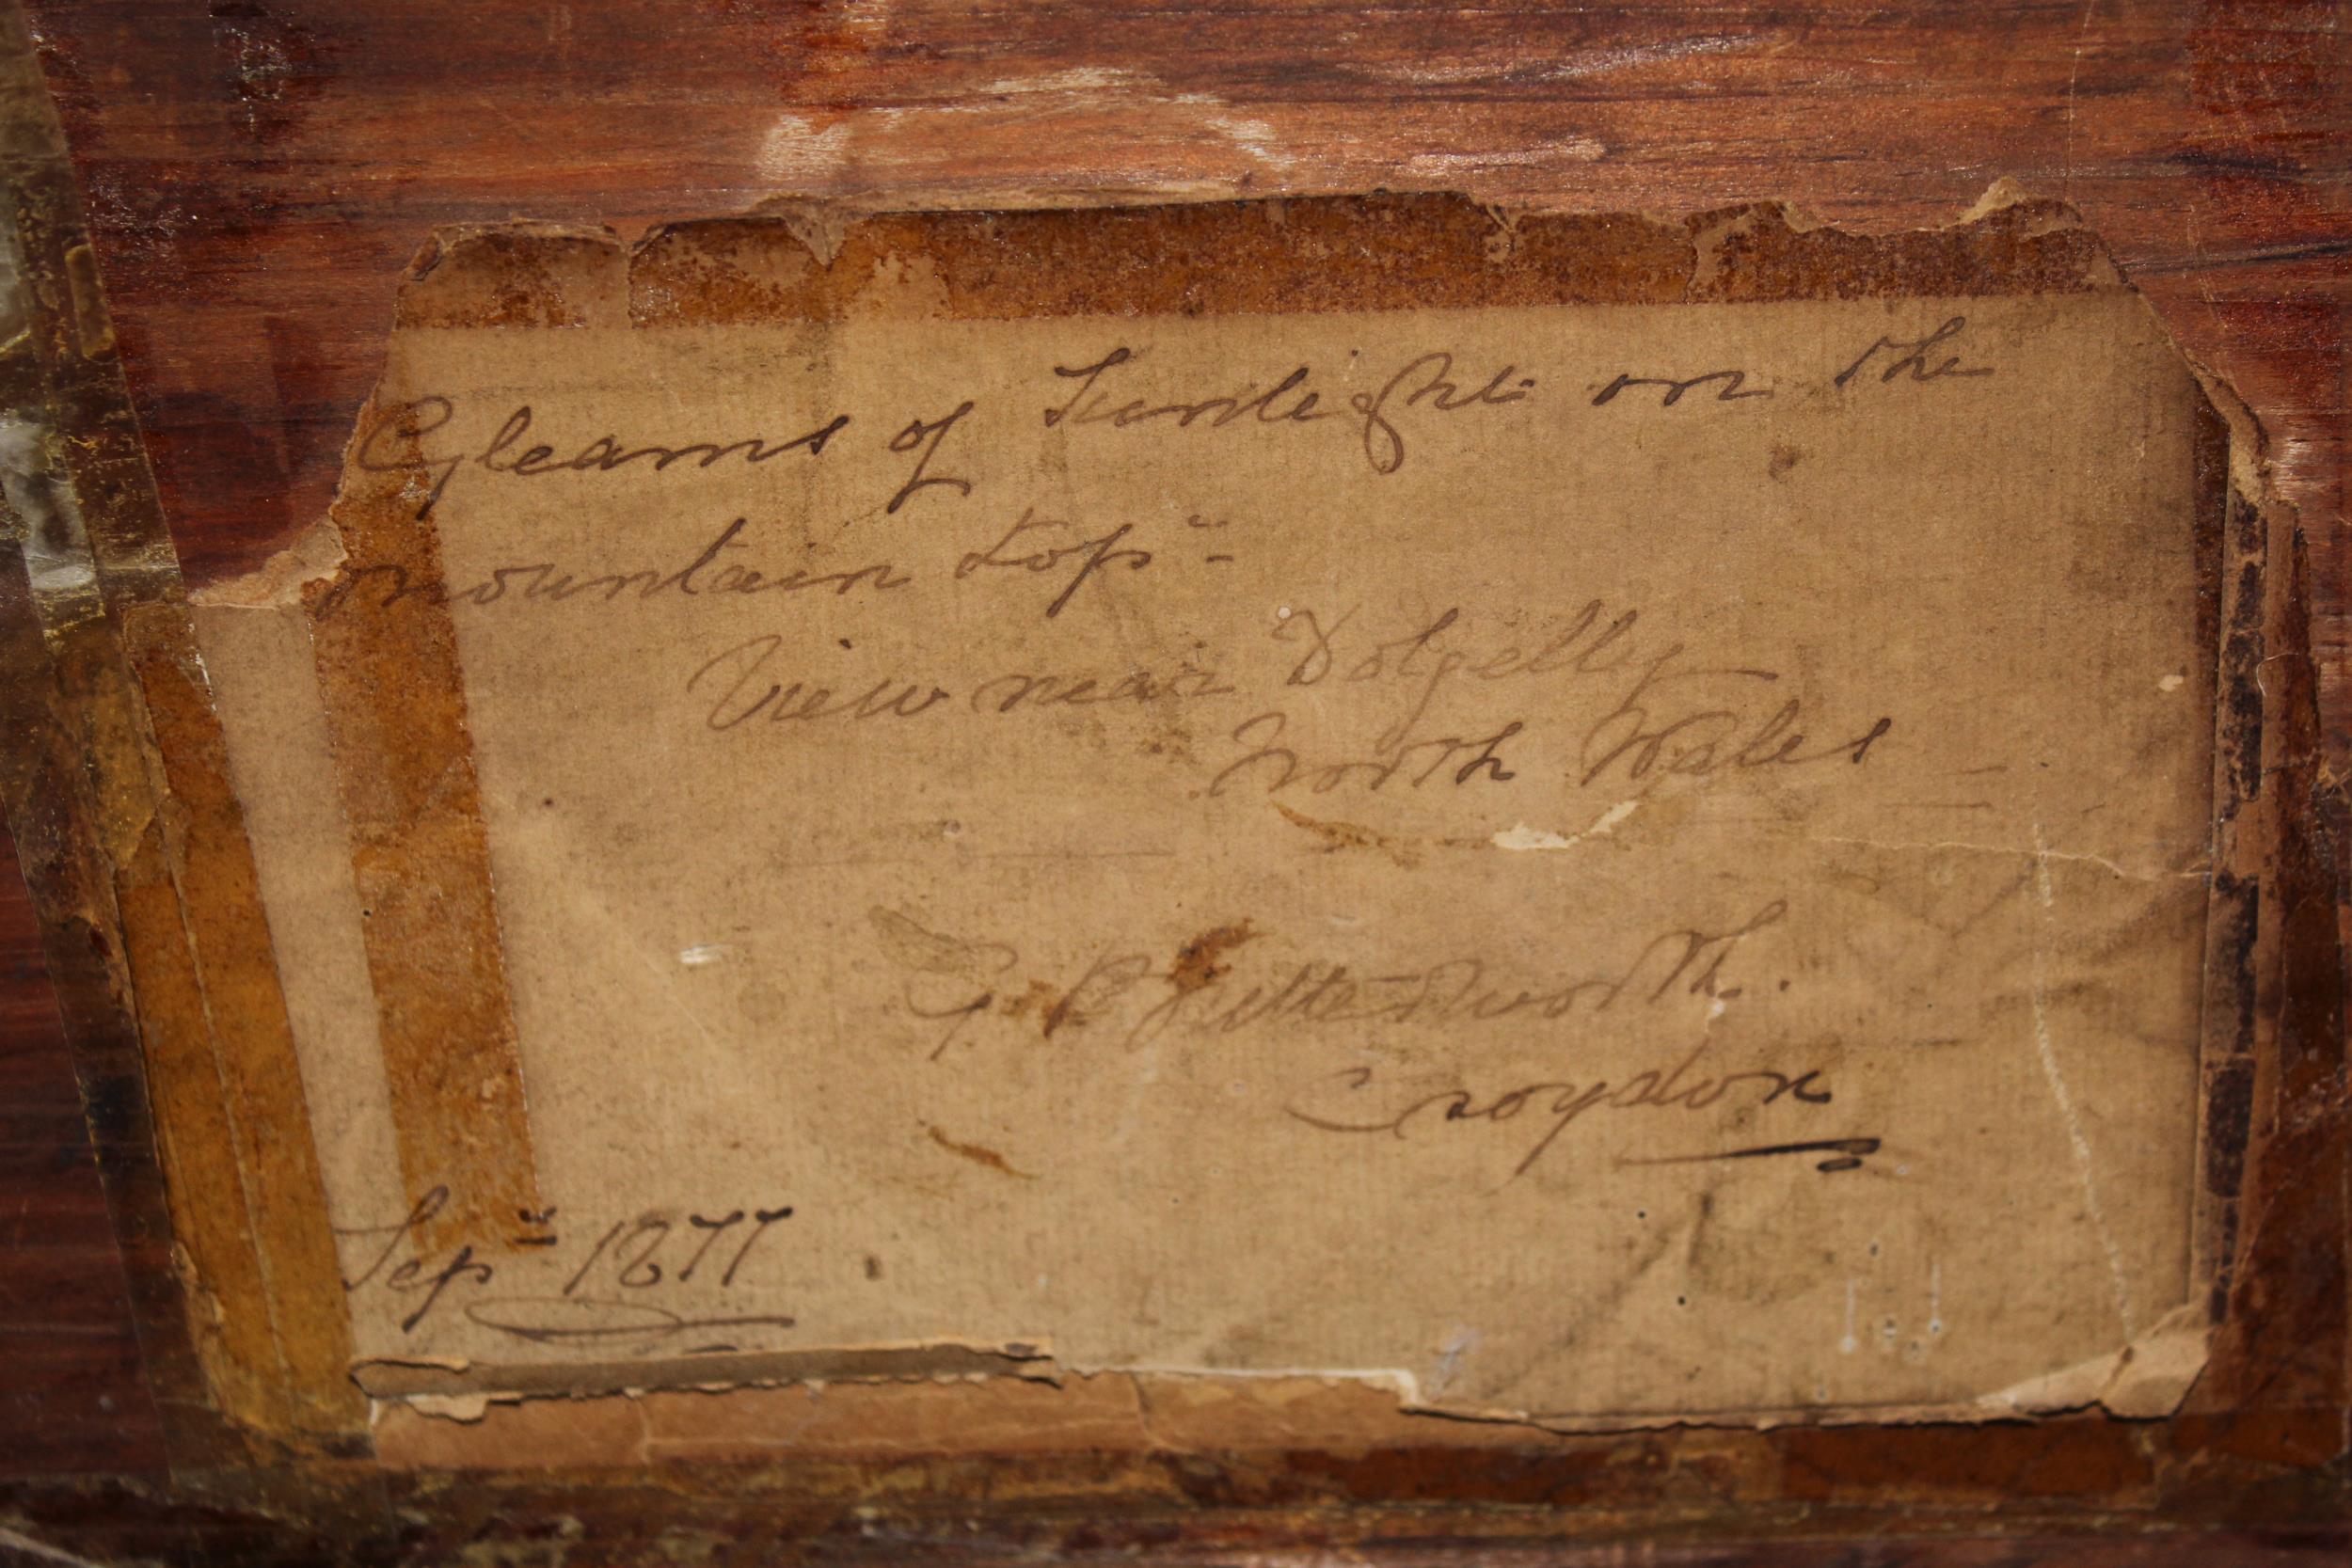 Gleams of Sunlight on the
mountain tops
View near Dolgelly
North Wales
G. Butterworth.
Croydon
Sepr 1877